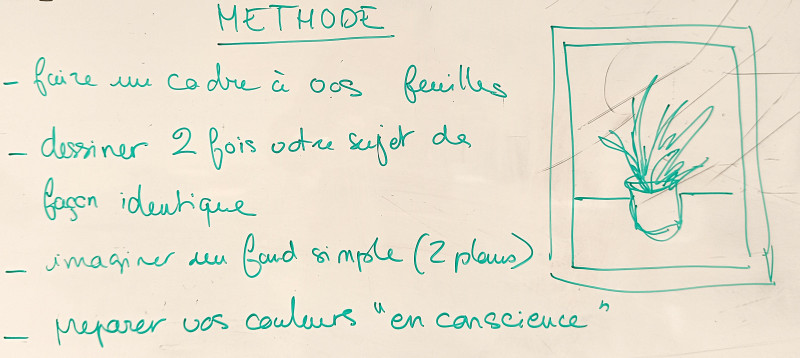 METHODE
- faire un cadre à vos feuilles
- dessiner 2 fois votre sujet de
façon identique
- imaginer un fond simple (2 plans)
- preparer vos couleurs "en conscience"